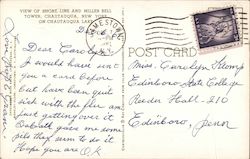 VIEW OF SHORE LINE AND MILLER BELL
TOWER, CHAUTAUQUA, NEW YORK
ON CHAUTAUQUA LAKE
Dear Carolyn
I would have sent
you a card before
but have been quit
sick with the flu am
just getting over it
gave me some
pills they seem to do it
Hope you are O.K
POST CARD
Miss. Carolyn
Edinboro State College
Reeder Hall - 210
Edinboro, Penn